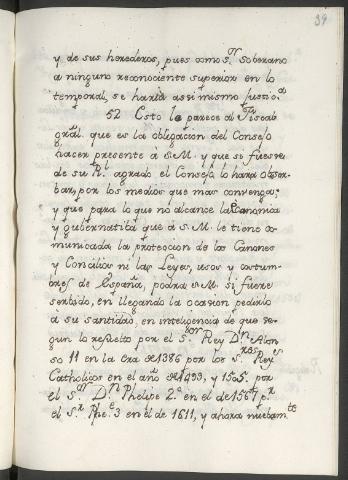 39
y de sus herederos, pues como S.ⁿ soberano
a ninguno reconociente superior en lo
temporal, se haria assi mismo justic.ᵃ
52 Esto le parece al Fiscal
gral. que es la obligacion del Consejo
hacer presente a S.M. y que si fuese
de su R.ˡ agrado el Consejo lo hara obser-
bar, por los medios que mas convenga;
y que para lo que no alcance la economia
y gubernatiba que a S.M. le tiene co-
municada la proteccion de los Canones
y Concilios ni las Leyes, usos y costum-
bres de España, podra S.M. si fuere
serbido, en llegando la ocasion pedirlo
à su santidad, en inteligencia de que se-
gun lo resuelto por el S.ᵒʳ Rey D.ⁿ Alon
so 11 en la era de 1386 por los S.ʳᵉˢ Reyˢ
Catholicos en el año de 1493, y 1505. por
el S.ʳ D.ⁿ Phelipe 2.º en el de 1567 p.ʳ
el S.ʳ Phe.ᵉ 3 en el de 1611, y ahora nuebam.ᵗᵉ